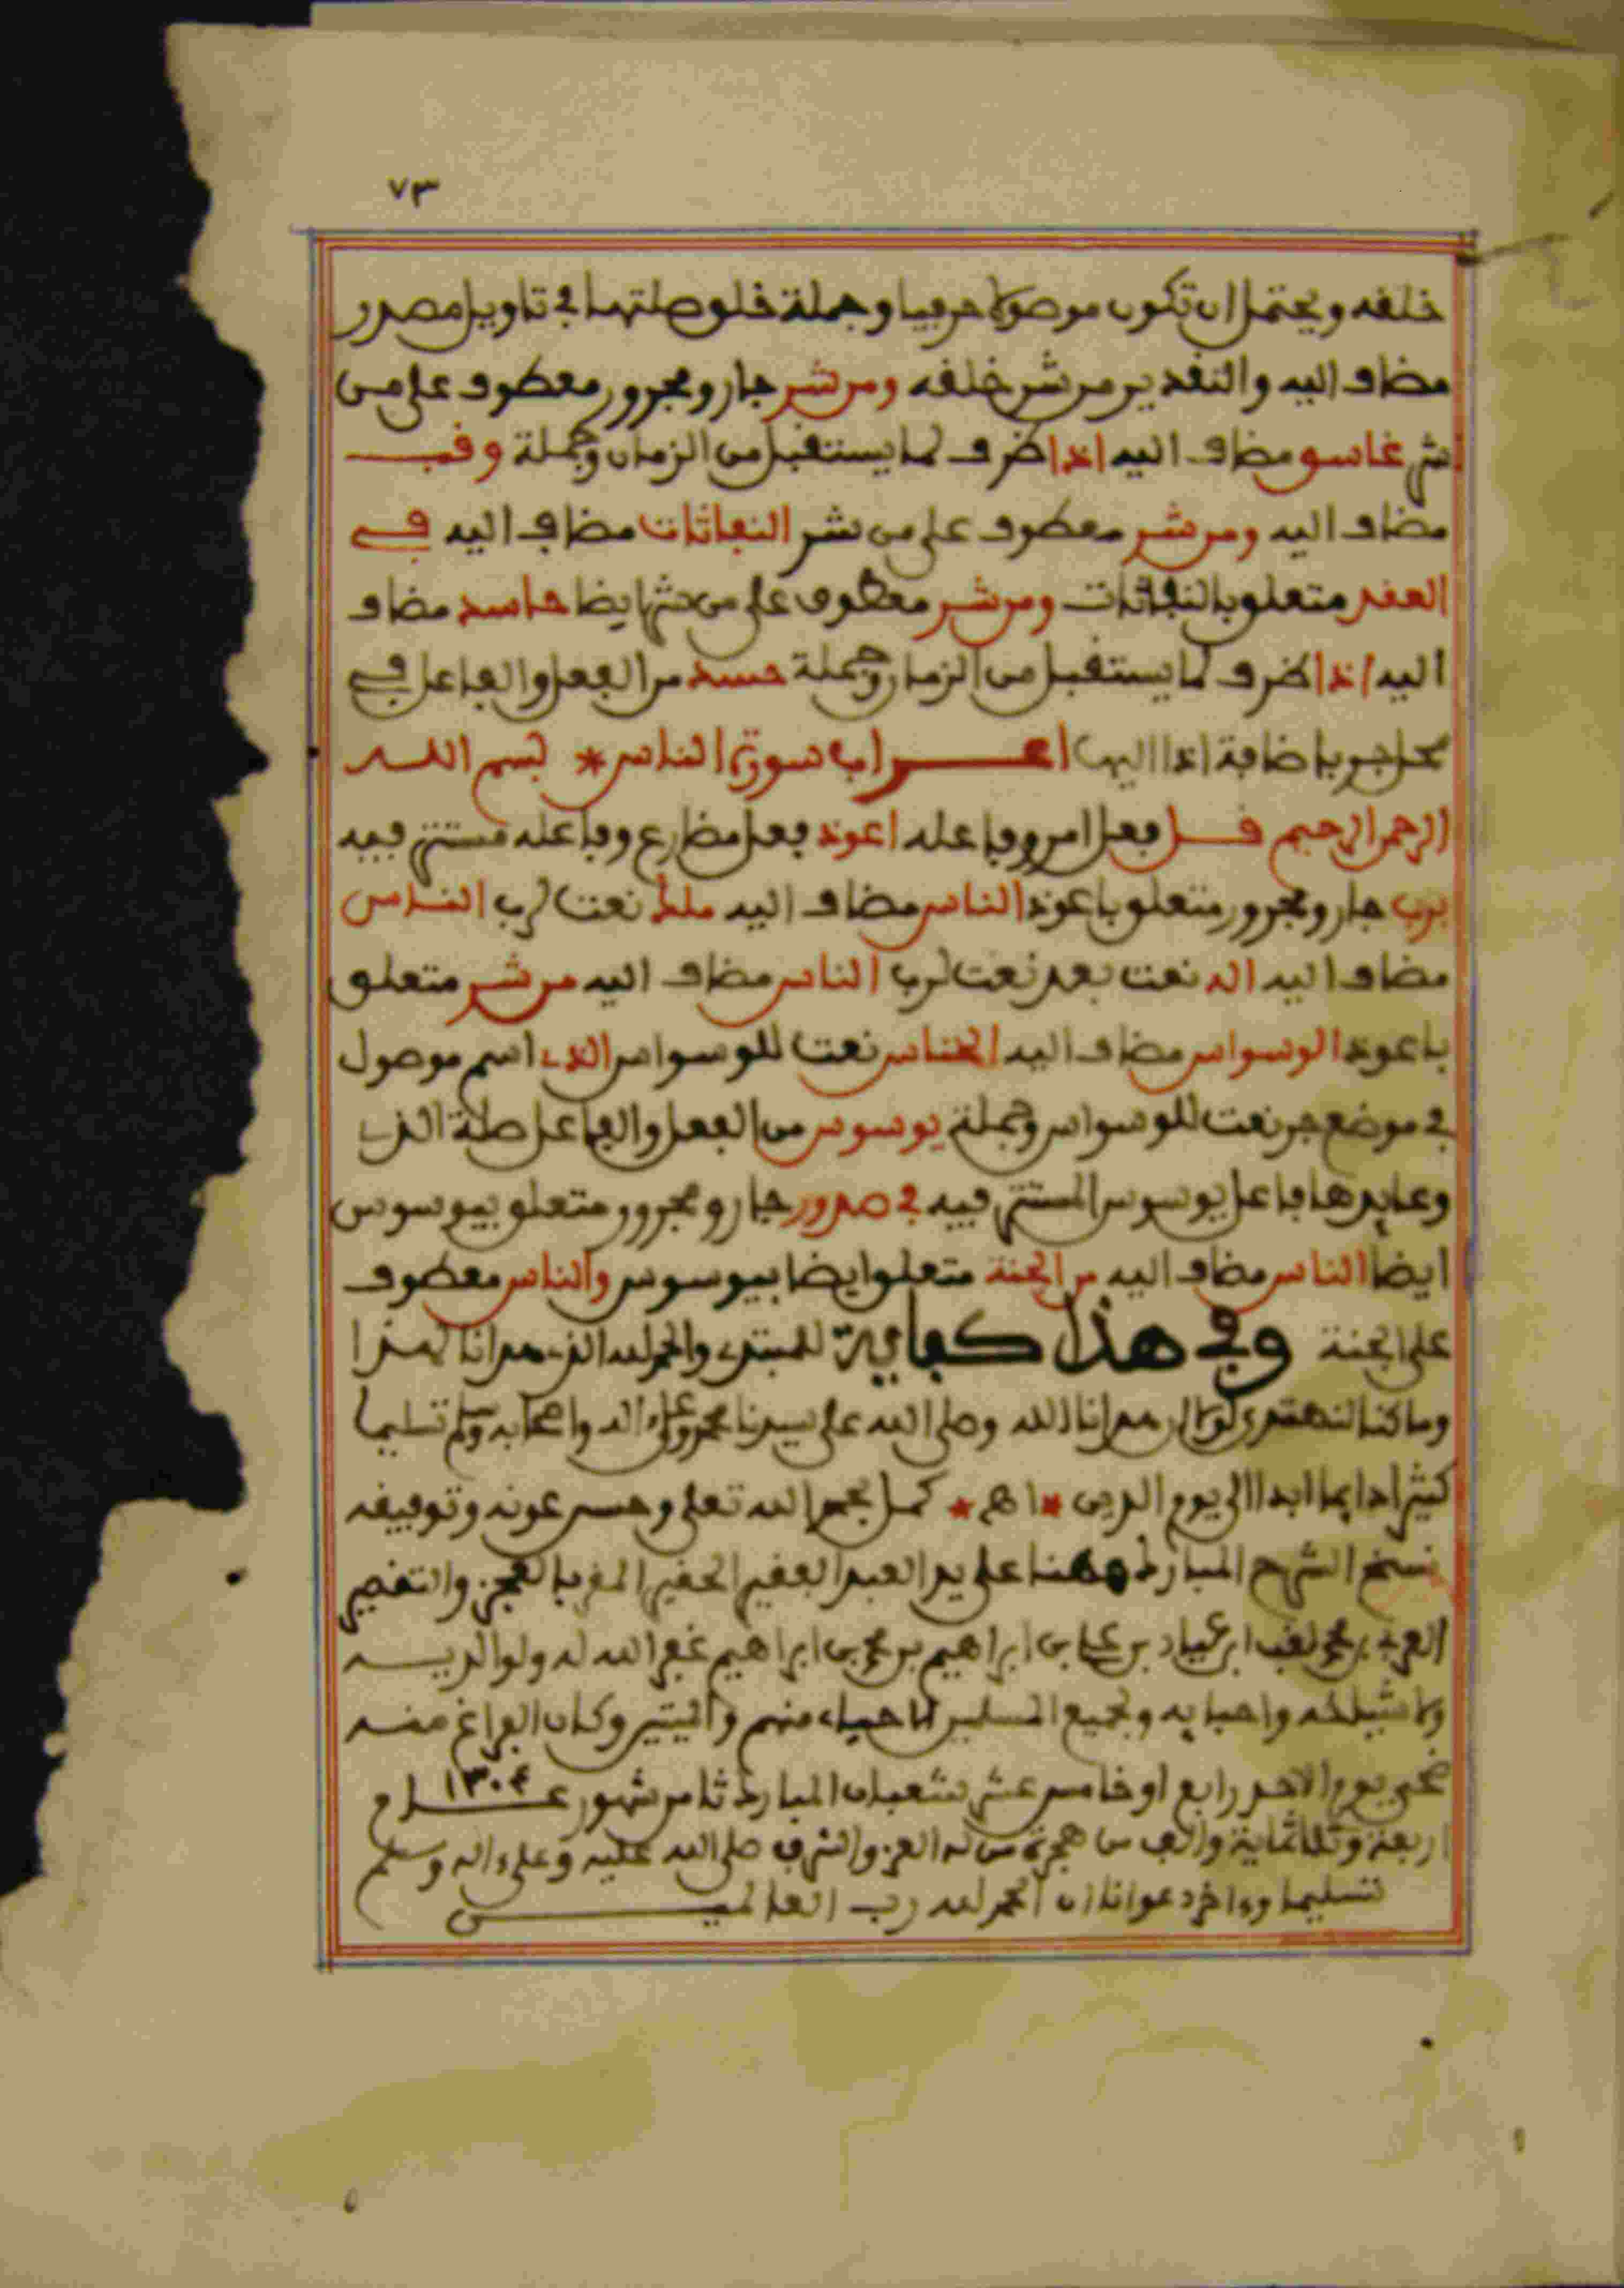 ٧٣
خلقه ويحتمل ان تكون موصولا حرفيا وجملة خلق صلتها في تاويل مصدر
مضاف اليه والتقدير من شر خلقه ومن شر جار ومجرور معطوف على من
شر غاسق مضاف اليه اذا ظرف لما يستقبل من الزمان وجملة وقب
مضاف اليه ومن شر معطوف على من شر النفاثات مضاف اليه في
العقد متعلق بالنفاثات ومن شر معطوف على من شر ايضا حاسد مضاف
اليه اذا ظرف لما يستقبل من الزمان وجملة حسد من الفعل والفاعل في
محل جر باضافة اذا اليها اعراب سورة الناس * بسم الله
الرحمن الرحيم قل فعل امر وفاعله اعوذ فعل مضارع وفاعله مستتر فيه
برب جار ومجرور متعلق باعوذ الناس مضاف اليه ملك نعت لرب الناس
مضاف اليه اله نعت بعد نعت لرب الناس مضاف اليه من شر متعلق
باعوذ الوسواس مضاف اليه الخناس نعت للوسواس الذي اسم موصول
في موضع جر نعت للوسواس وجملة يوسوس من الفعل والفاعل صلة الذي
وعايدها فاعل يوسوس المستتر فيه في صدور جار ومجرور متعلق بيوسوس
ايضا الناس مضاف اليه من الجنة متعلق ايضا بيوسوس والناس معطوف
على الجنة وفي هذا كفاية للمبتدي والحمد لله الذي هدانا لهذا
وما كنا لنهتدي لولا ان هدانا الله وصلى الله على سيدنا محمد وعلى ءاله واصحابه وسلم تسليما
كثيرا دايما ابدا الى يوم الدين * اهـ * كمل بحمد الله تعلى وحسن عونه وتوفيقه
نسخ الشرح المبارك ههنا على يد العبد الفقير الحقير المقر بالعجز والتقصير
بن ابراهيم بن محمد بن ابراهيم غفر الله له ولوالديه
ولاشياخه واحبابه ولجميع المسلمين الاحياء منهم والميتين وكان الفراغ منه
ضحى يوم الاحد رابع او خامس عشر شعبان المبارك ثامن شهور عام ١٣٠٤
اربعة وثلاثماية والف من هجرة من له العز والشرف صلى الله عليه وعلى ءاله وسلم
تسليما وءاخر دعوانا ان الحمد لله رب العالمين